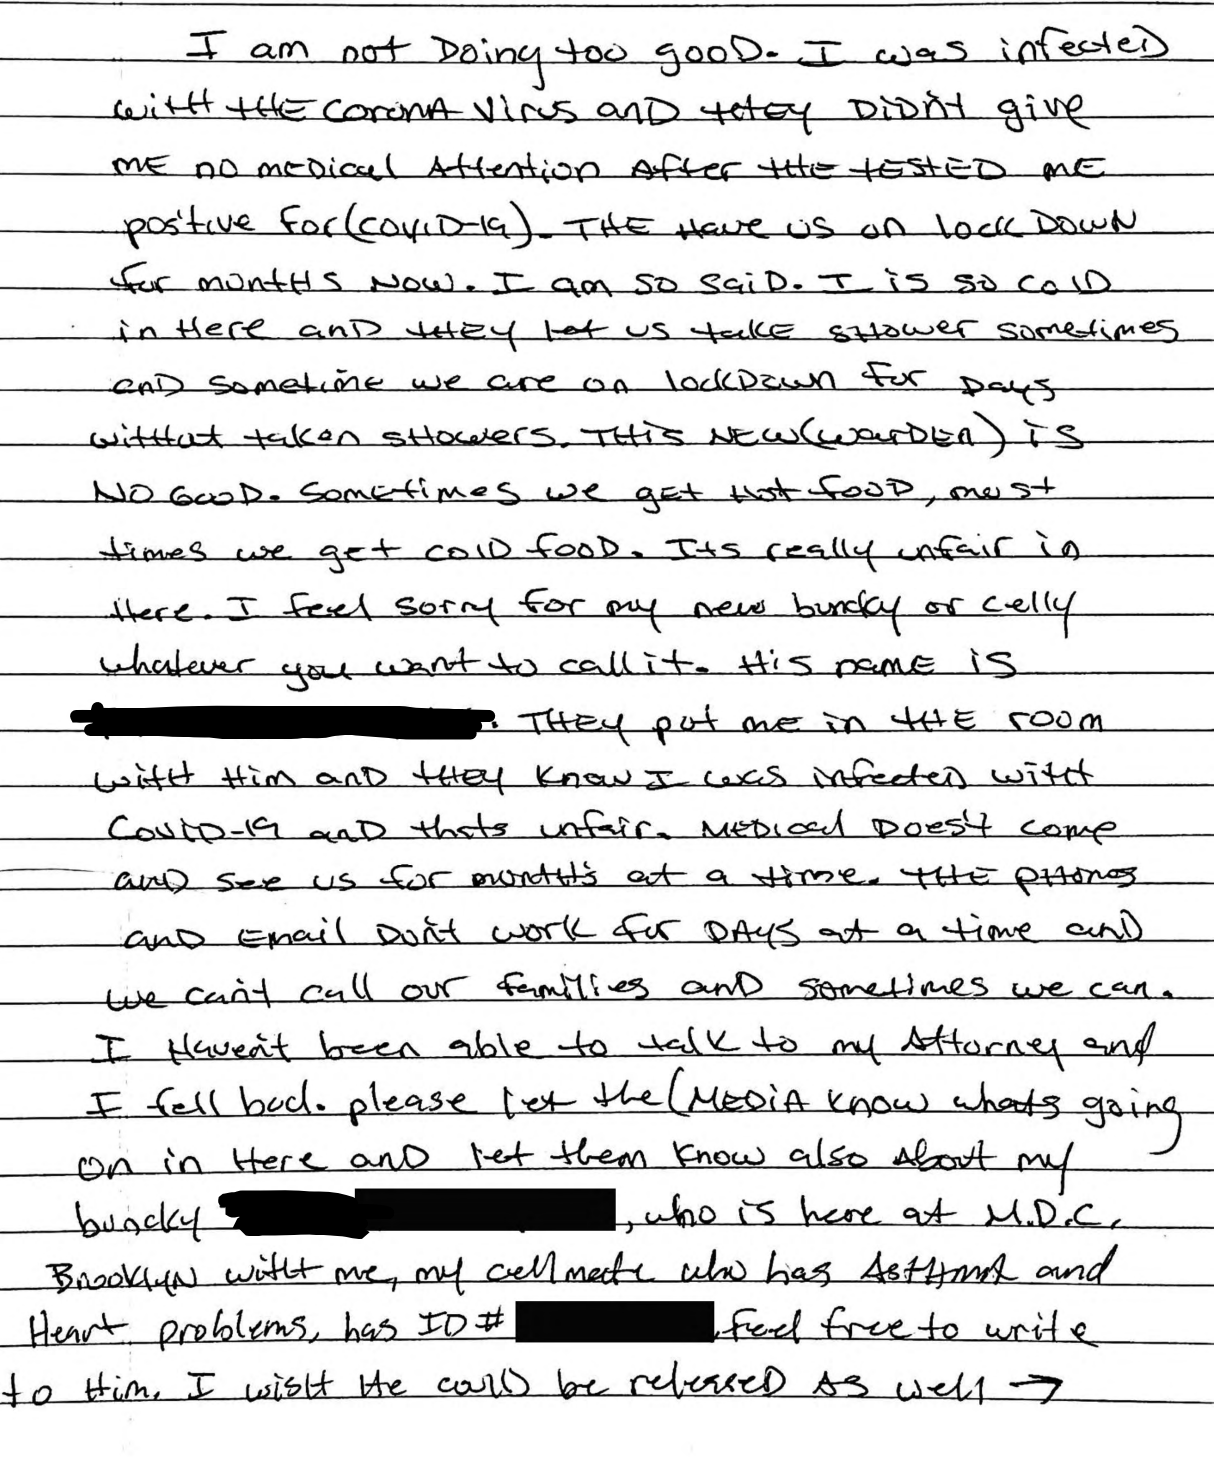 I am not Doing too gooD. I was infecteD
witH tHE CoronA Virus anD tHey DiDn't give
ME no meDical Attention After tHE tESTED mE
positive for (COViD-19). THE Have us on lock DOWN
for montHs NOW. I am so saiD. I is so colD
in Here anD tHEy let us take sHower sometimes
anD sometime we are on lockDown for Days
witHut taken sHowers. THis NEW (warDEn) is
NO GooD. Sometimes we get Hot fooD, most
times we get colD fooD. Its really unfair in
Here. I feel sorry for my new buncky or celly
whatever you want to call it. His namE is
. THEy put me in tHE room
witH Him anD tHEy Know I was infecteD witH
CoviD-19 anD thats unfair. MEDical Does't come
anD see us for montHs at a time. tHE pHones
anD Email Don't work for DAyS at a time anD
we can't call our families anD sometimes we can.
I Haven't been able to talk to my Attorney and
I fell bad. please let the (MEDiA Know whats going
on in Here anD let them Know also About my
buncky , who is here at M.D.C.
BrooklyN witH me, my cellmate who has AstHmA and
Heart problems, has ID # . Feel free to write
to Him. I wisH He coulD be releaseD As well →